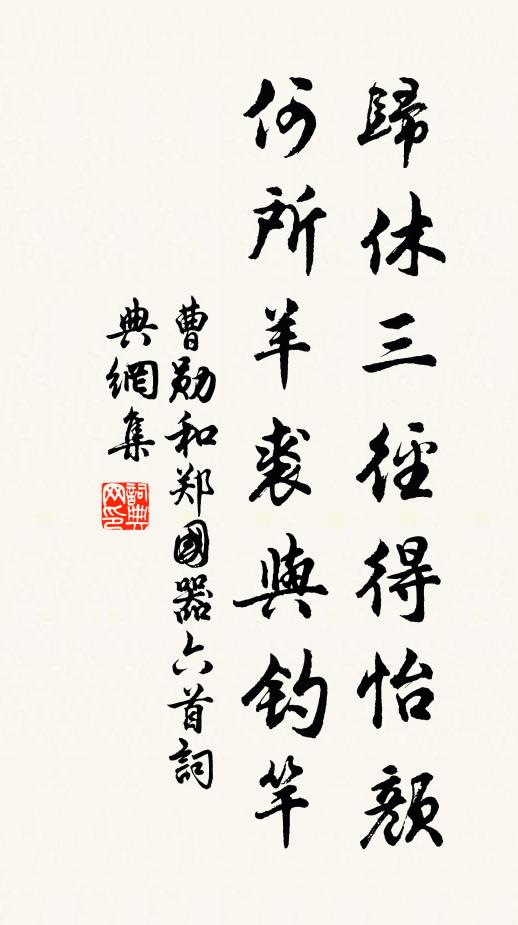 歸休三徑得怡顏
何所羊裘與釣竿
曹勛和郑國器六首詞
典網集
詞典网印